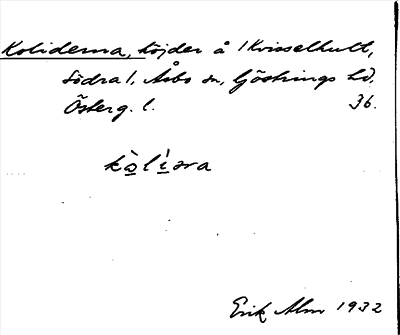 Koliderna, höjder å 1 Kvisselhult,
Södra 1, Åsbo sn, Göstrings hd.
Österg. l. 36.
kòlíɘra
Erik Alm 1932